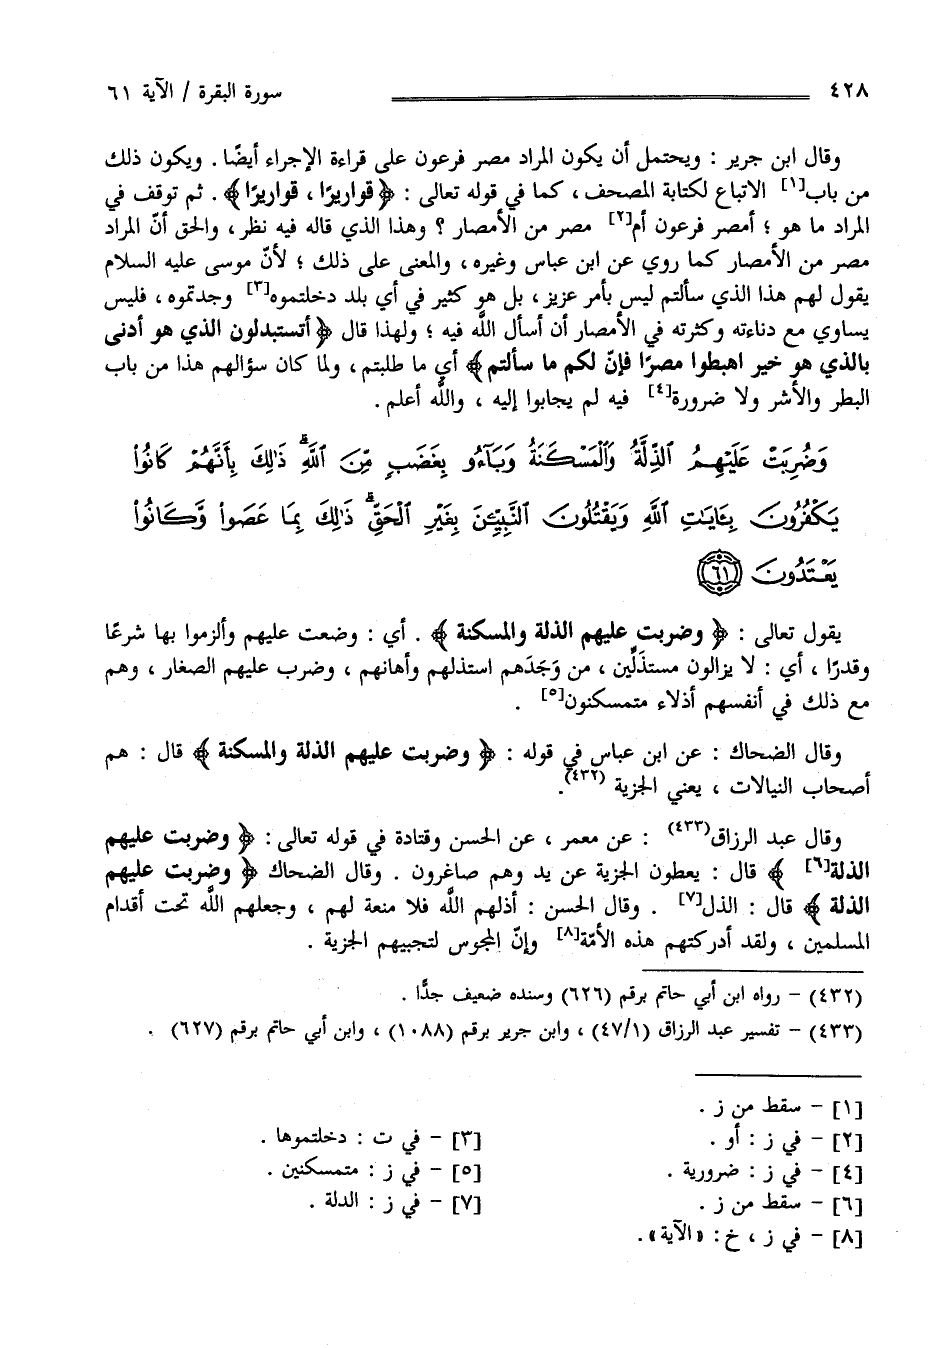 ٤٢٨ سورة البقرة / الآية ٦١
وقال ابن جرير : ويحتمل أن يكون المراد مصر فرعون على قراءة الإجراء أيضًا . ويكون ذلك
من باب[١] الاتباع لكتابة المصحف ، كما في قوله تعالى : ﴿قواريرًا ، قواريرًا﴾ . ثم توقف في
المراد ما هو ؛ أمصر فرعون أم[٢] مصر من الأمصار ؟ وهذا الذي قاله فيه نظر ، والحق أنّ المراد
مصر من الأمصار كما روي عن ابن عباس وغيره ، والمعنى على ذلك ؛ لأنّ موسى عليه السلام
يقول لهم هذا الذي سألتم ليس بأمر عزيز ، بل هو كثير في أي بلد دخلتموه[٣] وجدتموه ، فليس
يساوي مع دناءته وكثرته في الأمصار أن أسأل الله فيه ؛ ولهذا قال ﴿أتستبدلون الذي هو أدنى
بالذي هو خير اهبطوا مصرًا فإنّ لكم ما سألتم﴾ أي ما طلبتم ، ولما كان سؤالهم هذا من باب
البطر والأشر ولا ضرورة[٤] فيه لم يجابوا إليه ، والله أعلم .
وَضُرِبَتْ عَلَيْهِمُ ٱلذِّلَّةُ وَٱلْمَسْكَنَةُ وَبَآءُو بِغَضَبٍ مِّنَ ٱللَّهِۗ ذَٰلِكَ بِأَنَّهُمْ كَانُوا۟
يَكْفُرُونَ بِـَٔايَـٰتِ ٱللَّهِ وَيَقْتُلُونَ ٱلنَّبِيِّـۧنَ بِغَيْرِ ٱلْحَقِّۗ ذَٰلِكَ بِمَا عَصَوا۟ وَّكَانُوا۟
يَعْتَدُونَ ٦١
يقول تعالى : ﴿ وضربت عليهم الذلة والمسكنة ﴾ . أي : وضعت عليهم وألزموا بها شرعًا
وقدرًا ، أي : لا يزالون مستذَلِّين ، من وَجَدَهم استذلهم وأهانهم ، وضرب عليهم الصغار ، وهم
مع ذلك في أنفسهم أذلاء متمسكنون[٥] .
وقال الضحاك : عن ابن عباس في قوله : ﴿ وضربت عليهم الذلة والمسكنة ﴾ قال : هم
أصحاب النيالات ، يعني الجزية (٤٣٢).
وقال عبد الرزاق(٤٣٣) : عن معمر ، عن الحسن وقتادة في قوله تعالى : ﴿ وضربت عليهم
الذلة[٦] ﴾ قال : يعطون الجزية عن يد وهم صاغرون . وقال الضحاك ﴿ وضربت عليهم
الذلة ﴾ قال : الذل[٧] . وقال الحسن : أذلهم الله فلا منعة لهم ، وجعلهم الله تحت أقدام
المسلمين ، ولقد أدركتهم هذه الأمّة[٨] وإنّ المجوس لتجبيهم الجزية .
(٤٣٢) - رواه ابن أبي حاتم برقم (٦٢٦) وسنده ضعيف جدًّا .
(٤٣٣) - تفسير عبد الرزاق (٤٧/١) ، وابن جرير برقم (١٠٨٨) ، وابن أبي حاتم برقم (٦٢٧) .
[١] - سقط من ز .
[٢] - في ز : أو . [٣] - في ت : دخلتموها .
[٤] - في ز : ضرورية . [٥] - في ز : متمسكنين .
[٦] - سقط من ز . [٧] - في ز : الدلة .
[٨] - في ز ، خ : «الآية» .